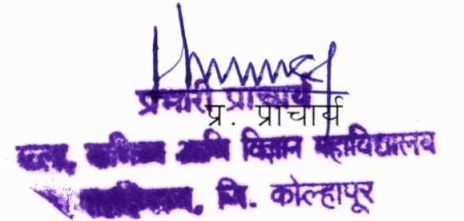 प्रभारी प्राचार्य
प्र. प्राचार्य
कला, वाणिज्य आणि विज्ञान महाविद्यालय
जि. कोल्हापूर